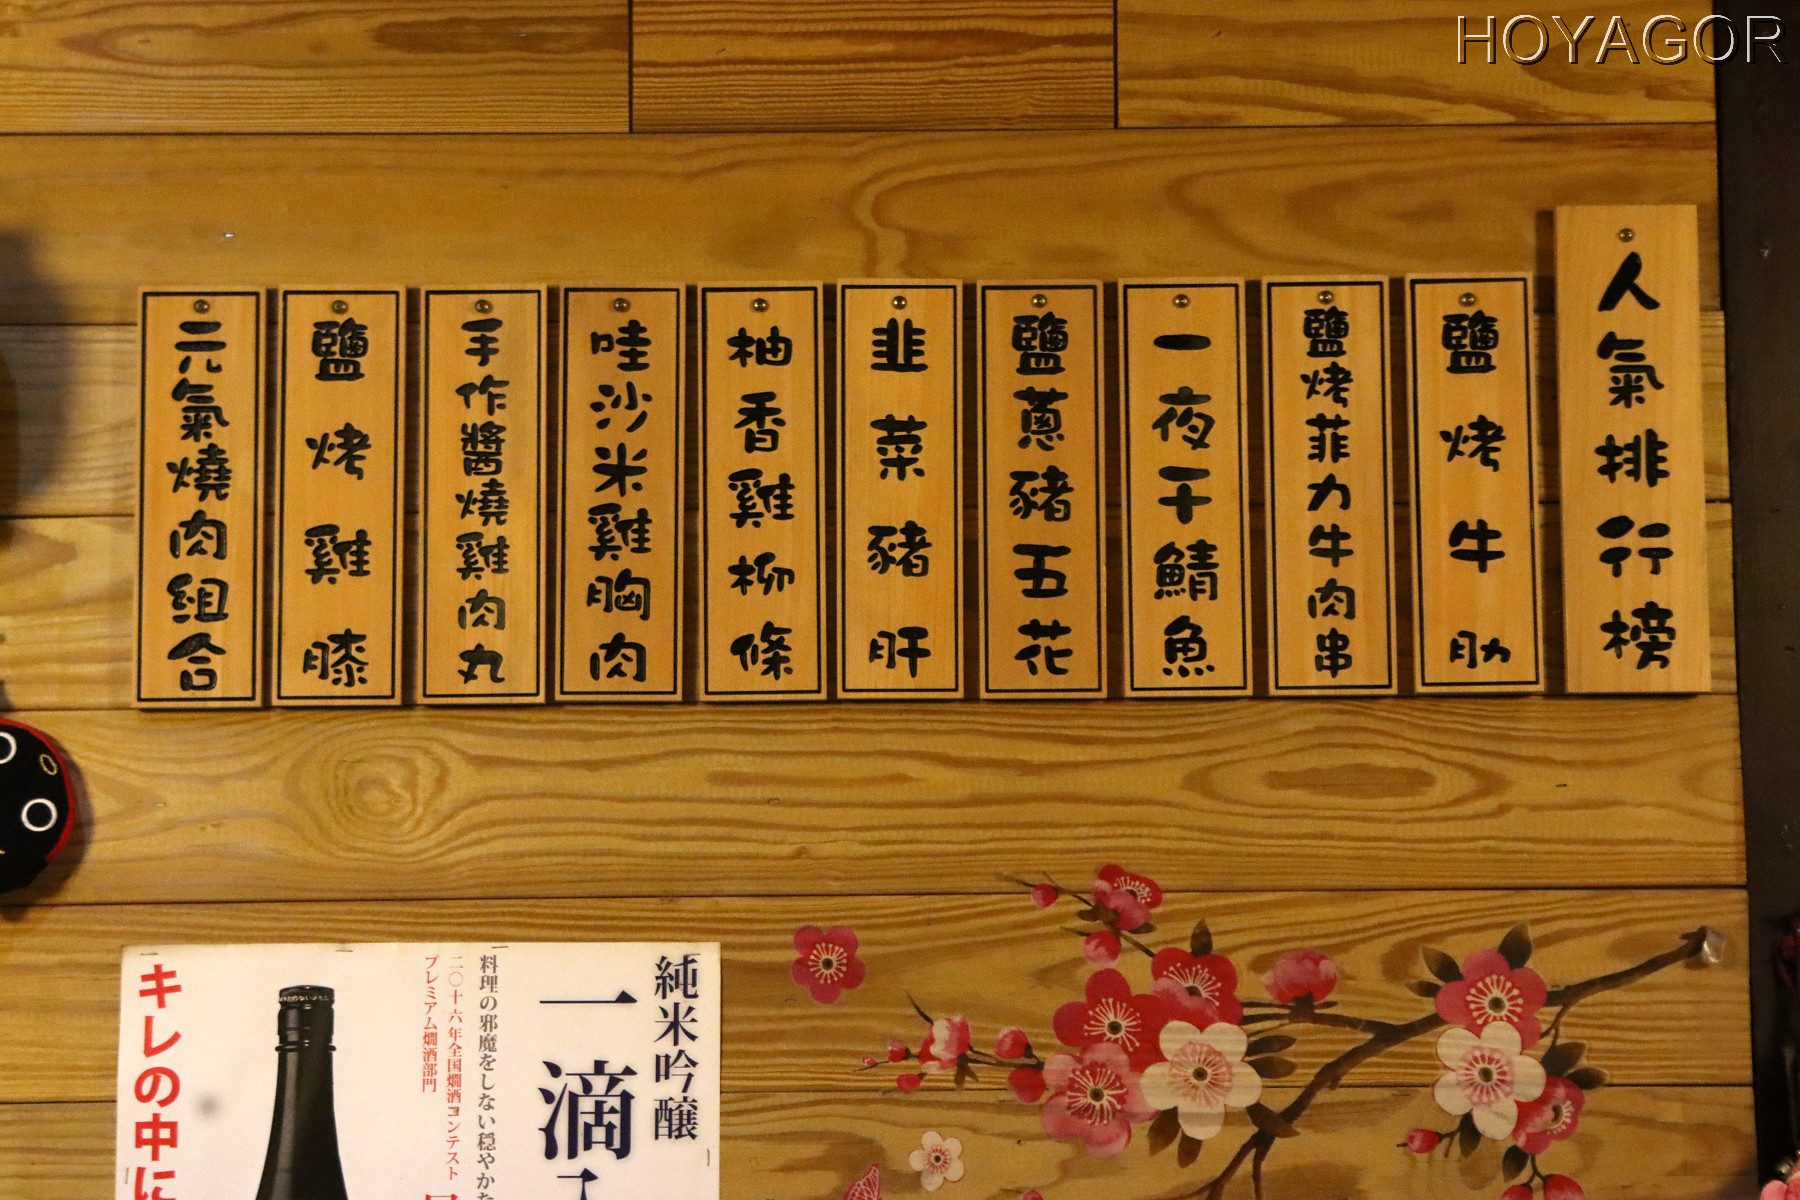 HOYAGOR
人氣排行榜
鹽烤牛肋
鹽烤菲力牛肉串
一夜干鯖魚
鹽蔥豬五花
韭菜豬肝
柚香雞柳條
哇沙米雞胸肉
手作醬燒雞肉丸
鹽烤雞膝
元氣燒肉組合
純米吟醸
一滴入
料理の邪魔をしない穏やかな
二〇十六年全国燗酒コンテスト
プレミアム燗酒部門
キレの中に